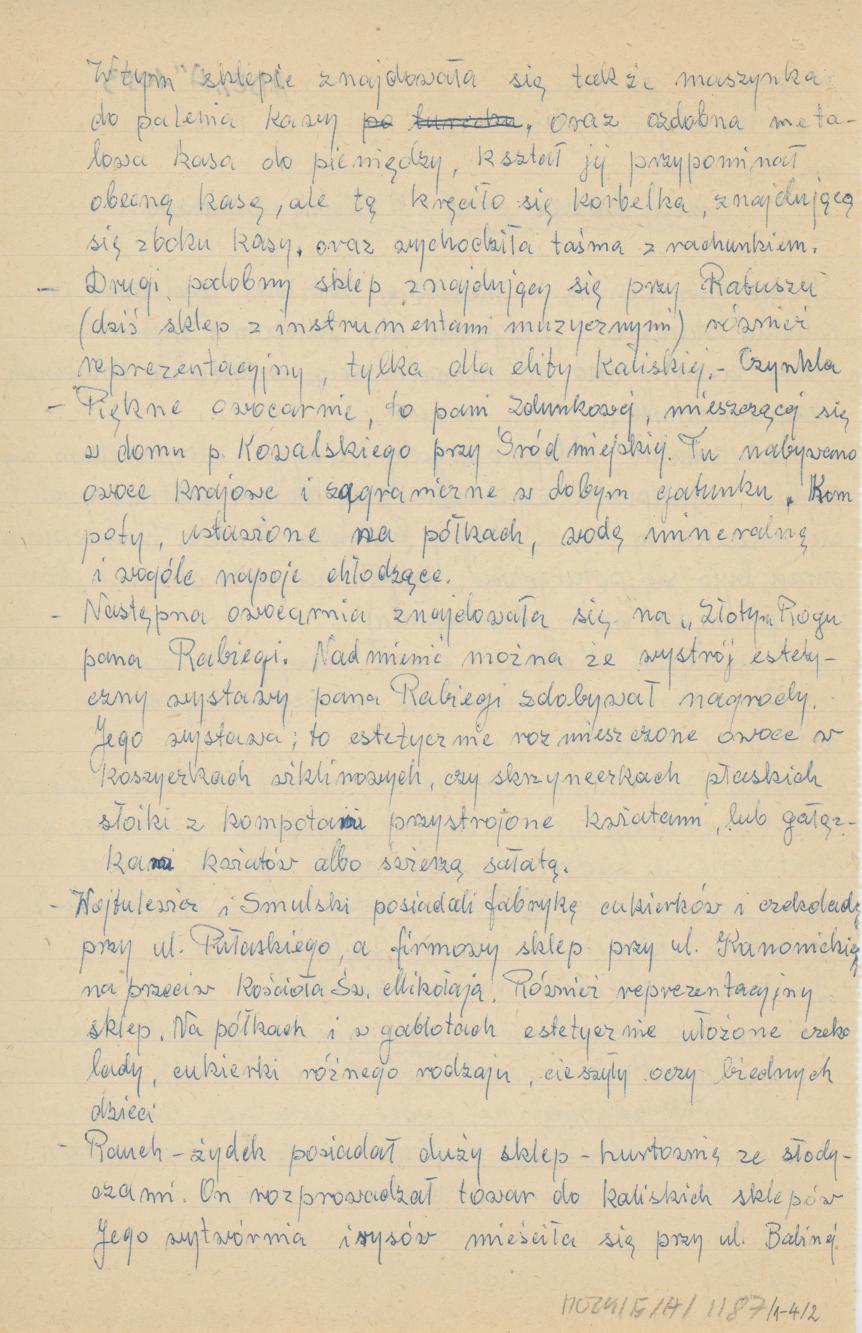 W tym sklepie znajdowała się także maszynka
do palenia kawy po turecku, oraz ozdobna meta-
lowa kasa do pieniędzy, kształt jej przypominał
obecną kasę, ale tą kręciło się korbelka, znajdującą
się zboku kasy, oraz wychodziła taśma z rachunkiem.
- Drugi podobny sklep znajdujący się przy Rabuszu
(dziś sklep z instrumentami muzycznymi) również
reprezentacyjny, tylka dla elity Kaliskiej.-
- Piękne owocarnie, to pani Zdunkowej, mieszczącej się
w domu p. Kowalskiego przy Śródmiejskiej. Tu nabywano
owoce krajowe i zagraniczne w dobym gatunku. Kom
poty, ustawione na półkach, wodę mineralną
i wogóle napoje chłodzące.
- Następna owocarnia znajdowała się na „Złotym Rogu
pana Rabiegi. Nadmienić można że wystrój estety-
czny wystawy pana Rabiegi zdobywał nagrody.
Jego wystawa; to estetycznie rozmieszczone owoce w
koszyczkach wiklinowych, czy skrzyneczkach płaskich
słoiki z kompotami przystrojone kwiatami, lub gałąz-
kami kwiatów albo świeżą sałatą.
- Wojtulewicz i Smulski posiadali fabrykę cukierków i czekolady
przy ul. Pułaskiego, a firmowy sklep przy ul. Kanonickiej
na przeciw Kościoła Św. Mikołaja. Również reprezentacyjny
sklep. Na półkach i w gablotach estetycznie ułożone czeko
lady, cukierki różnego rodzaju, cieszyły oczy biednych
dzieci
- Rauch - żydek posiadał duży sklep - hurtownię ze słody-
czami. On rozprowadzał towar do kaliskich sklepów
Jego wytwórnia irysów mieściła się przy ul. Babinej.
MOZK/E/A/1187/1-4/2